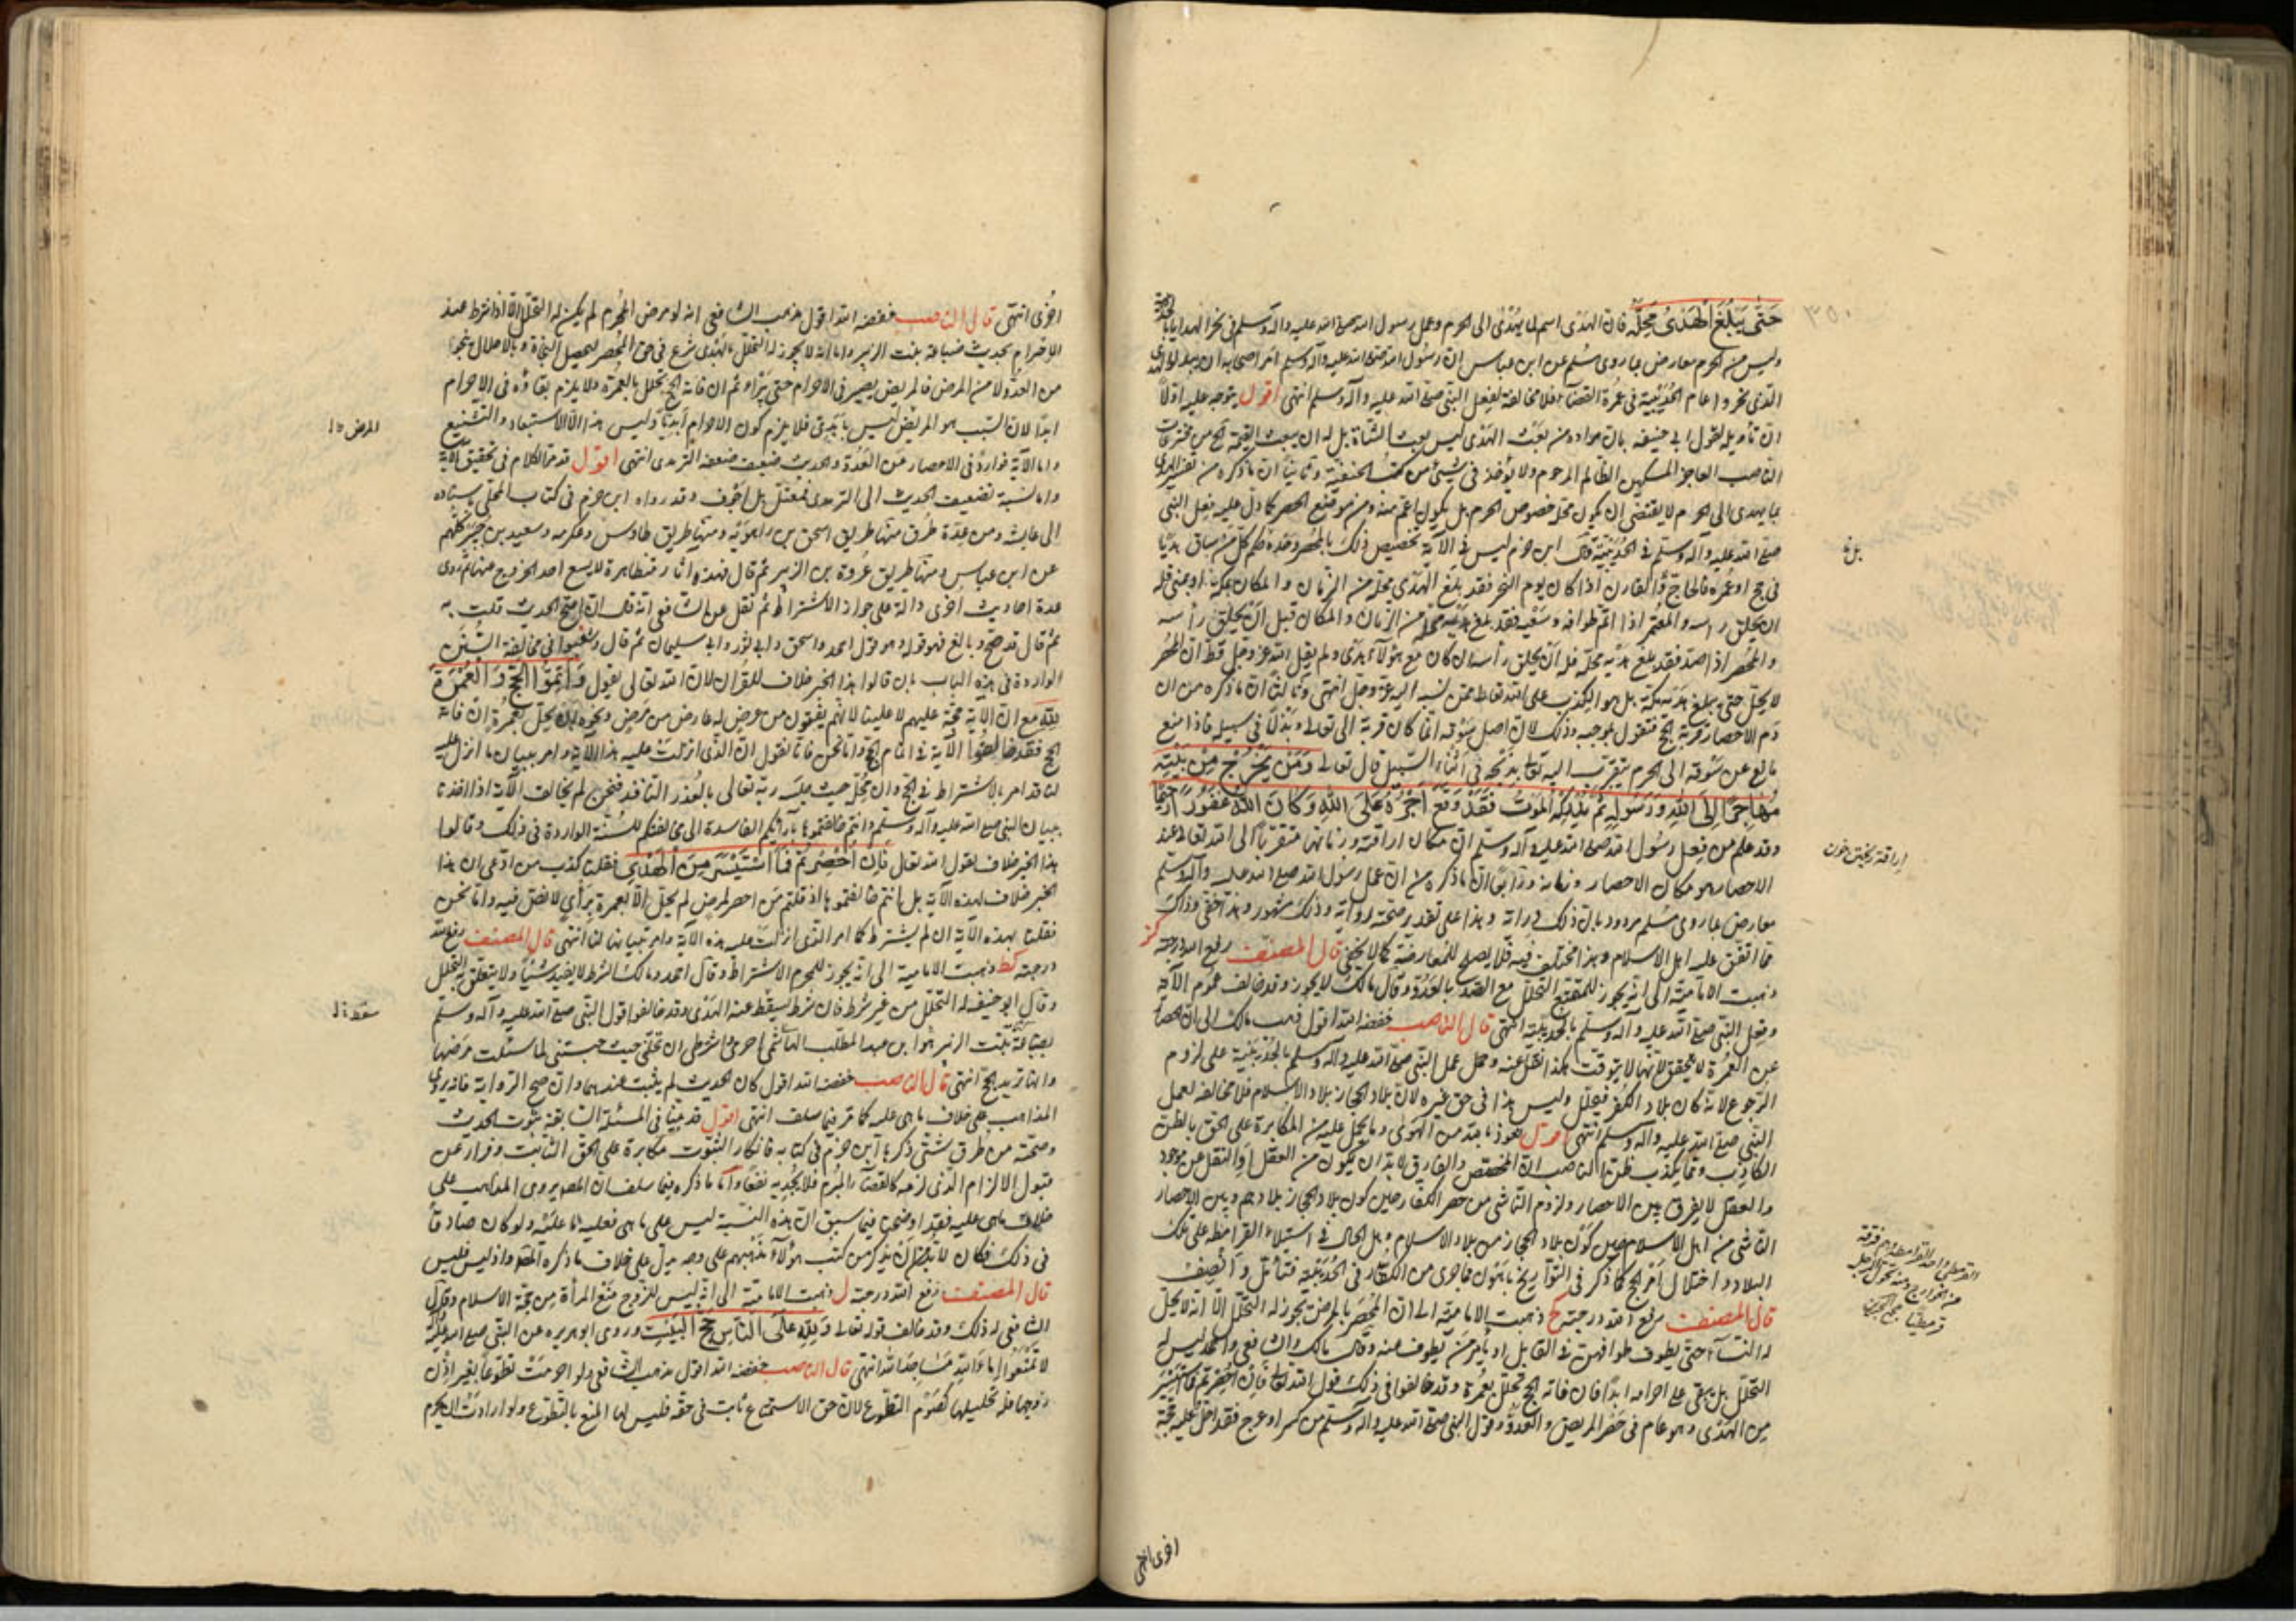 حَتّٰى يَبْلُغَ الْهَدْىُ مَحِلَّهُ فان الهَدْى اسم لما يُهْدٰى الى الحرم وعمل رسول الله صلى الله عليه وآله وسلم فى نحر الهدايا
وليس من الحرم معارض بما روى مسلم عن ابن عباس ان رسول الله صلى الله عليه وآله وسلم امر اصحابه ان يبدلوا الهدى
الذى نحروا عام الحُدَيْبية فى عُمْرة القضاء فلا مخالفة لفعل النبى صلى الله عليه وآله وسلم انتهى اقول يتوجه عليه اولا
ان تأويله لقول ابى حنيفه بان مراده من بعث الهَدْى ليس بعث الشاة بل له ان يبعث القيمة
الناصب العاجز المسكين الظالم المرحوم ولا يوجد فى شيئ من كتب الحنفية وثانيا ان ما ذكره من تفسير الهدى
بما يهدى الى الحرم لا يقتضى ان يكون محله خصوص الحرم بل يكون اعم منه ومن موضع الحصر كما دل عليه فعل النبى
صلى الله عليه وآله وسلم فى الحُدَيْبِيَّة وقال ابن حزم ليس فى الآية تخصيص ذلك بالمحصر وحده بل حكم كل من ساق هديا
فى حج او عُمْرة فالحاجّ والقارن اذا كان يوم النحر فقد بلغ الهدى محله من الزمان والمكان بمكة او بمنى فله
ان يحلق رأسه والمعتمر اذا اتم طوافه وسَعْيه فقد بلغ هديه محله من الزمان والمكان قبل ان يحلق رأسه
والمحصر اذا صد فقد بلغ هديه محله فله ان يحلق رأسه ان كان مع هؤلاء هدى ولم يقل الله عز وجل قط ان المحصر
لا يحل حتى يبلغ هديه مكة بل هو الكذب على الله تعالى ممن نسبه اليه عز وجل انتهى وثالثا ان ما ذكره من ان
دم الاحصار قربة الخ فنقول بموجبه وذلك لان اصل سَوْقه انما كان قربة الى تعالى وبَذْلًا فى سبيله فاذا منع
مانع عن سَوْقه الى الحرم يتقرب اليه تعالى بذبحه فى اثناء السبيل قال تعالى وَمَنْ يَخْرُجْ مِنْ بَيْتِهِ
مُهَاجِرًا إِلَى اللّٰهِ وَرَسُولِهِ ثُمَّ يُدْرِكْهُ الْمَوْتُ فَقَدْ وَقَعَ أَجْرُهُ عَلَى اللّٰهِ وَكَانَ اللّٰهُ غَفُورًا رَحِيمًا
وقد علم من فعل رسول الله صلى الله عليه وآله وسلم ان مكان اراقته وزمانها متقربا الى الله تعالى عند
الاحصار هو مكان الاحصار وزمانه ورابعًا ان ما ذكره من ان عمل رسول الله صلى الله عليه وآله وسلم
معارض بما روى مسلم مردود بان ذلك دراية وهذا على تقدير صحته رواية وذلك مشهور وهذا خفى وذاك
مما اتفق عليه اهل الاسلام وهذا مختلف فيه فلا يصلح للمعارضة كما لا يخفى قال المصنف رفع الله درجته
كز
ذهبت الامامية الى انه يجوز للمتمتع التحلل مع الصد بالعدوّ وقال مالك لا يجوز وقد خالف عموم الآية
وفعل النبى صلى الله عليه وآله وسلم بالحديبية انتهى قال الناصب خفضه الله اقول ذهب مالك الى ان الحصر
عن العمرة لا يتحقق لانها لا يتوقت هكذا نقل عنه وحمل عمل النبى صلى الله عليه وآله وسلم بالحُدَيْبِيَة على لزوم
الرجوع لانه كان بلاد الكفر فيتحلل وليس هذا فى حق غيره لان بلاد الحجاز بلاد الاسلام فلا مخالفة لعمل
النبى صلى الله عليه وآله وسلم انتهى اقول نعوذ بالله من الهوى وما يحمل عليه من المكابرة على الحق بالظن
الكاذب ومما يكذب ظن هذا الناصب ان المخصص والفارق لا بد ان يكون من العقل او النقل عن موجود
والعقل لا يفرق بين الاحصار ولزوم الناشى من حصر الكفار حين كون بلاد الحجاز بلادهم وبين الاحصار
الناشى من اهل الاسلام حين كون بلاد الحجاز من بلاد الاسلام وهل الحال فى استيلاء القرامطة على تلك
البلاد واختلال امر الحج كما ذكر فى التواريخ باهون مما جرى من الكفار فى الحُدَيْبية فتأمل وأنصف
قال المصنف رفع الله درجته كح ذهبت الامامية الى ان المُحْصَر بالمرض يجوز له التحلل الا انه لا يحل
له النساء حتى يطوف طوافهن فى القابل او يأمر من يطوف عنه وقال مالك والشافعى واحمد ليس له
التحلل بل يبقى على احرامه ابدًا فان فاته الحج تحلل بعُمْرة وقد خالفوا فى ذلك قول الله تعالى فَإِنْ أُحْصِرْتُمْ فَمَا اسْتَيْسَرَ
مِنَ الهَدْى وهو عام فى حَصْر المريض والعدوّ وقول النبى صلى الله عليه وآله وسلم من كسر او عرج فقد احل وعليه حجة
اخرى انتهى
٣٥٠
بلغ
اراقة ريختن خون
القرمطى واحد القرامطة وهم فرقة
من الخوارج
مجمع البحرين
اخرى انتهى قال الناصب خفضه الله اقول مذهب الشافعى انه لو مرض المحرم لم يكن له التحلل الا اذا شرط عند
الاحرام لحديث ضباعة بنت الزبير واما انه لا يجوز له التحلل بالهدى شرع فى حق المُحْصَر لتحصيل النجاة
من العدوّ لا من المرض فالمريض يصبر فى الاحرام حتى يبرأ ثم ان فاته الحج تحلل بالعمرة ولا يلزم بقاؤه فى الاحرام
ابدا لان السبب هو المرض ليس بابَدِىّ فلا يلزم كون الاحرام ابديّا وليس هذا الا الاستبعاد والتشنيع
واما الآية فواردة فى الاحصار عن العَدُوّ والحديث ضعيف ضعفه الترمذى انتهى اقول قد مر الكلام فى تحقيق الآية
واما نسبة تضعيف الحديث الى الترمذى فمعتل بل اجوف وقد رواه ابن حزم فى كتاب المحلى باسناده
الى عايشة ومن عِدّة طرق منها طريق اسحق بن راهَوَيْه ومنها طريق طاوس وعكرمه وسعيد بن جبير كلهم
عن ابن عباس ومنها طريق عُروة بن الزبير ثم قال فهذه اثار متظاهرة لا يسع احد الخروج عنها ثم روى
عدة احاديث اخرى دالة على جواز الاشتراط ثم نقل عن الشافعى انه قال ان صح الحديث قلت به
ثم قال قد صح وبالغ فهو قوله وهو قول احمد واسحق وابى ثور وابى سليمان ثم قال وشغبوا فى مخالفة السُّنن
الواردة فى هذه الباب بان قالوا هذا الخبر خلاف للقرآن لان الله تعالى يقول وَأَتِمُّوا الْحَجَّ وَالْعُمْرَةَ
لِلّٰهِ مع ان الآية حجة عليهم لا علينا لانهم يفتون من عرض له عارض من مرض ونحوه ان يحل بعُمرة ان فاته
الحج فقد خالفوا الآية فى اتمام الحج واما نحن فانا نقول ان الذى انزلت عليه هذا الآية وامر ببيان ما انزل عليه
لنا قد امر بالاشتراط فى الحج وان محله حيث حبسه ربه تعالى بالعُذر النافذ فنحن لم نخالف الآية اذا اخذنا
ببيان النبى صلى الله عليه وآله وسلم وانتم خالفتموها بآرائكم الفاسدة الى مخالفتكم للسُّنة الواردة فى ذلك وقالوا
هذا الخبر خلاف لقول الله تعالى فَإِنْ أُحْصِرْتُمْ فَمَا اسْتَيْسَرَ مِنَ الْهَدْىِ فقلنا كذب من ادعى ان هذا
الخبر خلاف لهذه الآية بل انتم خالفتموها اذ قلتم من احصر لمرض لم يحل الا بعمرة برَأْىٍ لا نص فيه واما نحن
فقلنا بهذه الآية ان لم يشترط كما امر الذى انزلت عليه هذه الآية وامر بتبيانها لنا انتهى قال المصنف رفع الله
درجته كط ذهبت الامامية الى انه يجوز للمحرم الاشتراط وقال احمد ومالك الشرط لا يفيد شيئا ولا يتعلق به التحلل
وقال ابو حنيفة له التحلل من غير شرط فان شرط سقط عنه الهَدْى وقد خالفوا قول النبى صلى الله عليه وآله وسلم
لضباعة بنت الزبير بن عبد المطلب الهاشمى احرمى واشترطى ان تحلّى حيث حبستنى لما سئلت مرضها
وانها تريد الحج انتهى قال الناصب خفضه الله اقول كان الحديث لم يثبت عندهما وان صح الرواية فانه يروى
المذاهب على خلاف ما هى عليه كما مر فيما سلف انتهى اقول قد بينّا فى المسئلة السابقة ثبوت الحديث
وصحته من طرق شتّى ذكرها ابن حزم فى كتابه فانكار الثبوت مكابرة على الحق الثابت وفرار عن
قبول الالزام الذى لزمه كالقضاء المُبْرم فلا يُجديه نفعًا واما ما ذكره فيما سلف ان المصنف يروى المذاهب على
خلاف ما هى عليه فقد اوضحنا فيما سبق ان هذه النسبة ليس على ما هى فعليه ما عليه ولو كان صادقا
فى ذلك فكان لا بد له من ان يذكر من كتب هؤلاء مذهبهم على وجه يدل على خلاف ما ذكره المصنف واذ ليس فليس
قال المصنف رفع الله درجته ل ذهبت الامامية الى انه ليس للزوج منع المرأة من حجة الاسلام وقال
الشافعى له ذلك وقد خالف قوله تعالى وَلِلّٰهِ عَلَى النَّاسِ حَجُّ الْبَيْتِ وروى ابو هريره عن النبى صلى الله عليه وآله
لا تمنعوا اماء الله مساجد الله انتهى قال الناصب خفضه الله اقول مذهب الشافعى ولو احرمت تطوّعا بغير اذن
زوجها فله تحليلها كصَوْم التطوع لان حق الاستمتاع ثابت فى حقه فليس لها المنع بالتطوع ولو ارادت ان يحرم